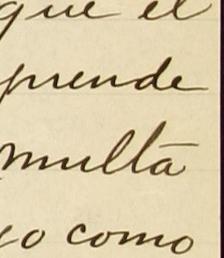 que el
prende
multa
go como